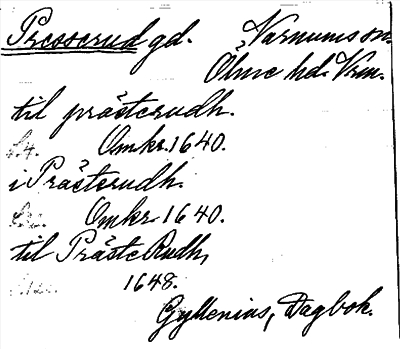 Presserud gd. Varnums sn.
Ölme hd. Vrm.
til prästerudh.
Omkr. 1640.
i Prästerudh.
Omkr. 1640.
til Präste Rudh,
1648.
Gyllenius, Dagbok.